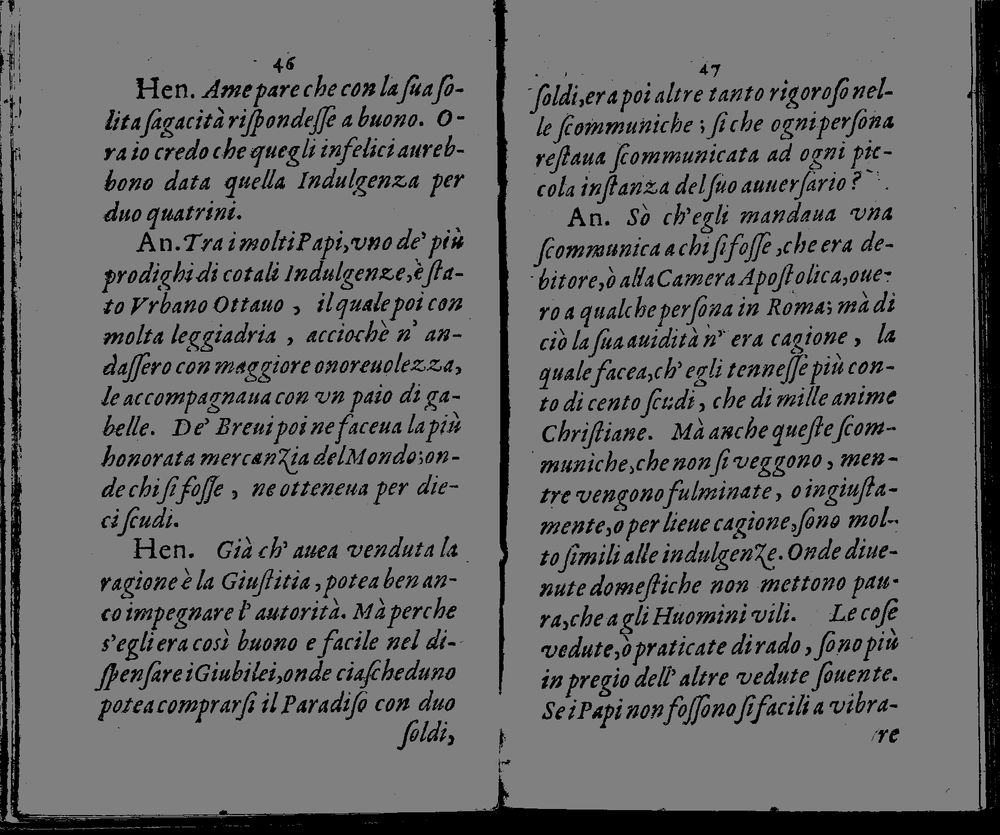 46
Hen. A me pare che con la ſua ſo-
lita ſagacità riſpondeſſe a buono. O-
ra io credo che quegli infelici aureb-
bono data quella Indulgenza per
duo quatrini.
An. Tra i molti Papi, vno de' più
prodighi di cotali Indulgenze, è ſta-
to Vrbano Ottauo , il quale poi con
molta leggiadria , acciochè n' an-
daſſero con maggiore onoreuolezza,
le accompagnaua con vn paio di ga-
belle. De' Breui poi ne faceua la più
honorata mercanZia del Mondo; on-
de chi ſi foſſe , ne otteneua per die-
ci ſcudi.
Hen. Già ch' auea venduta la
ragione è la Giuſtitia, potea ben an-
co impegnare l' autorità. Mà perche
s'egli era così buono e facile nel di-
ſpenſare i Giubilei, onde ciaſcheduno
potea comprarſi il Paradiſo con duo
ſoldi,
47
ſoldi, era poi altre tanto rigoroſo nel-
le ſcommuniche ; ſi che ogni perſona
reſtaua ſcommunicata ad ogni pic-
cola inſtanza del ſuo auuerſario?
An. Sò ch'egli mandaua vna
ſcommunica a chi ſi foſſe, che era de-
bitore, ò alla Camera Apoſtolica, oue-
ro a qualche perſona in Roma; mà di
ciò la ſua auidità n' era cagione , la
quale facea, ch' egli tenneſſe più con-
to di cento ſcudi, che di mille anime
Chriſtiane. Mà anche queſte ſcom-
muniche, che non ſi veggono , men-
tre vengono fulminate , o ingiuſta-
mente, o per lieue cagione, ſono mol-
to ſimili alle indulgenZe. Onde diue-
nute domeſtiche non mettono pau-
ra, che a gli Huomini vili. Le coſe
vedute, ò praticate di rado , ſono più
in pregio dell' altre vedute ſouente.
Se i Papi non foſſono ſi facili a vibra-
re